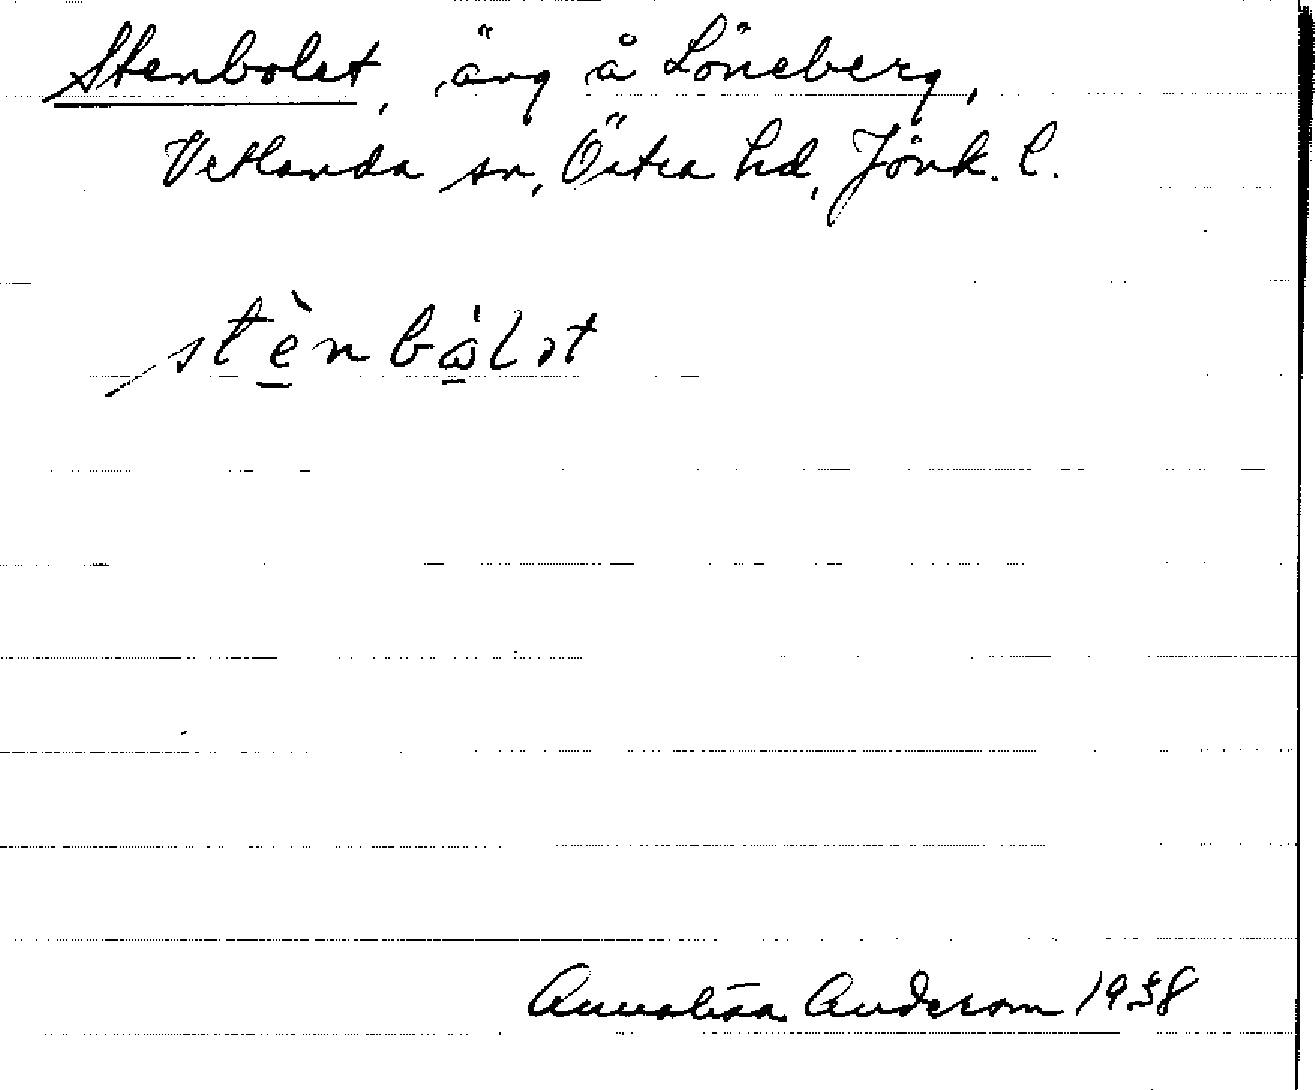 Stenbolet, äng å Löneberg,
Vetlanda sn, Östra hd, Jönk. l.
stènbål
Annalisa Anderson 1938